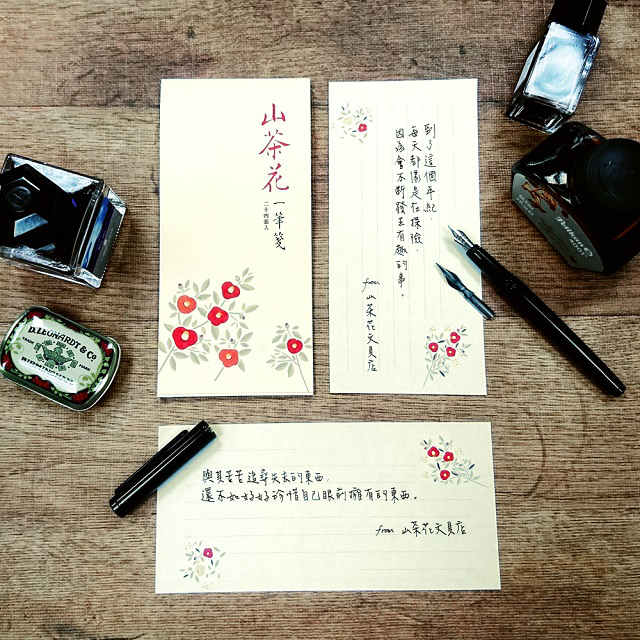 山茶花
一筆箋
二十四張入
到了這個年紀，
每天都像是在探險，
因為會不斷發生有趣的事。
from 山茶花文具店
D. LEONARDT & Co.
Pelikan
與其苦苦追尋失去的東西，
還不如好好珍惜自己眼前擁有的東西。
from 山茶花文具店